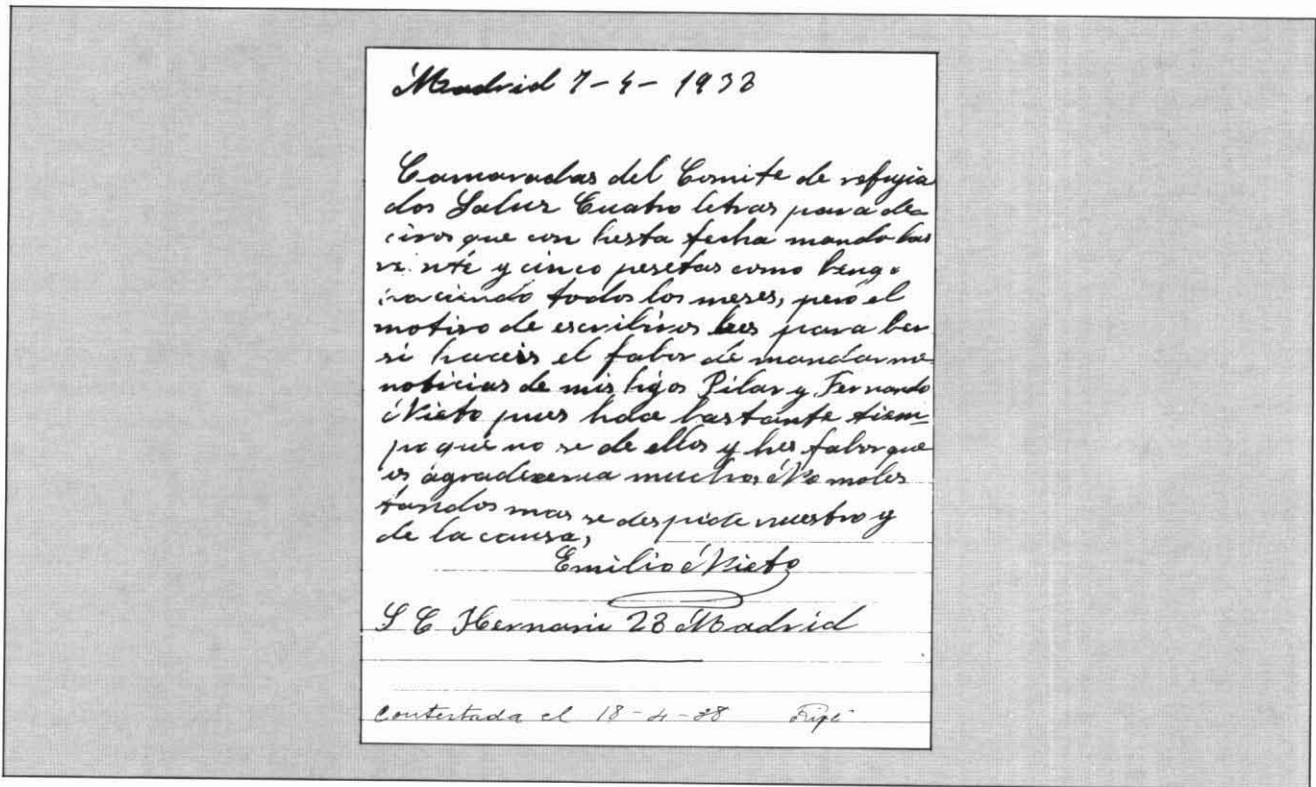 Madrid 7-4-1938
Camaradas del Comite de refugia
dos Salus Cuatro letras para de
ciros que con hesta fecha mando las
veinte y cinco pesetas como bengo
haciendo todos los meses, pero el
motivo de escribiros hes para ber
si haceis el fabor de mandarme
noticias de mis higos Pilar y Fernando
Nieto pues hace bastante tiem-
po que no se de ellos y hes fabor que
os agradeceria mucho No moles
tandos mas se despide vuestro y
de la causa,
Emilio Nieto
S C Hernani 23 Madrid
Contestada el 18-4-38